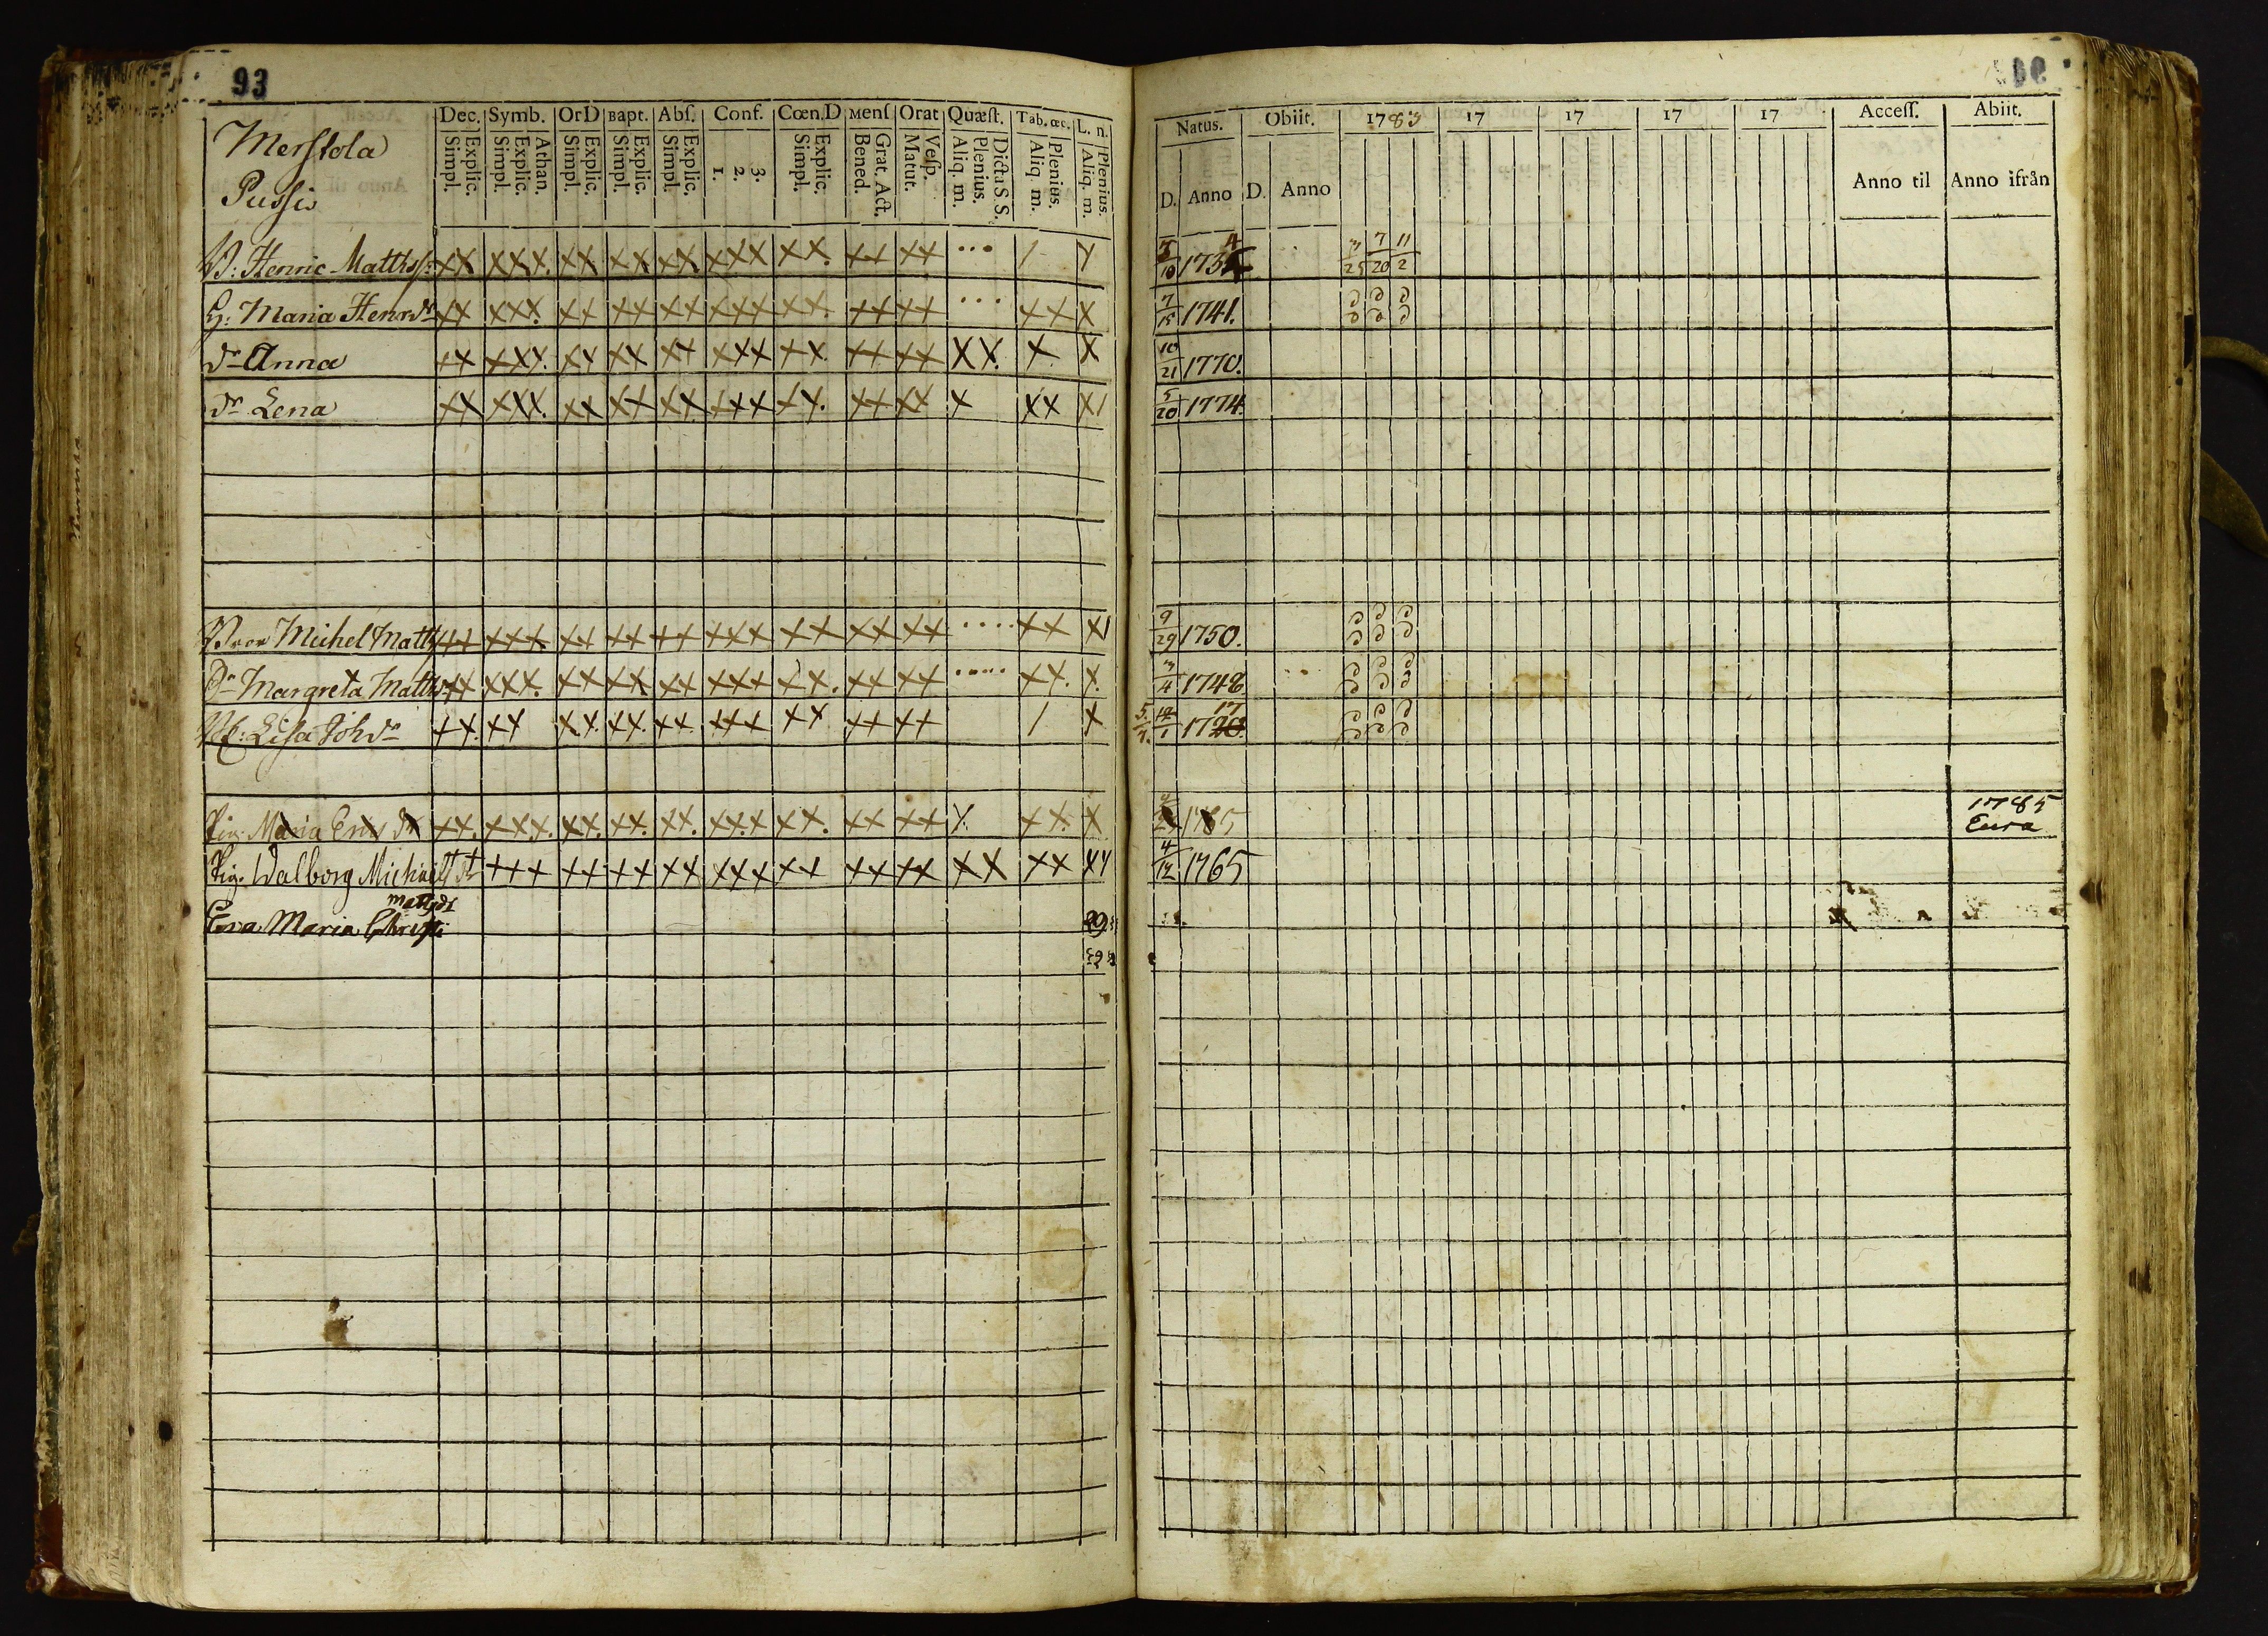 93
Merstola
Pussis
Dec. Symb. OrD Bapt. Abſ. Conf. Cœn.D Menſ Orat Quæſt. Tab. œc. L. n.
Explic. Simpl. Athan. Explic. Simpl. Explic. Simpl. Explic. Simpl. Explic. Simpl. 3. 2. 1. Explic. Simpl. Grat. Act. Bened. Veſp. Matut. Dicta S. S. Plenius. Aliq. m. Plenius. Aliq. m. Plenius. Aliq. m.
B: Henric Mattsſ: XX XXX. XX XX XX XXX XX. XX XX ... / Y
H: Maria Henrdr XX XXX. XX XX XX XXX XX. XX XX ... XX X
dr Anna XX XXX. XX XX XX XXX XX. XX XX XX. X X
dr Lena XX XXX. XX XX XX XXX XX. XX XX X XX X/
Michel Matts XX XXX XX XX XX XXX XX XX XX .... XX X/
Margreta Matts XX XXX. XX XX XX XXX XX. XX XX ..... XX. X.
Lisa Joh dr XX. XX XX. XX. XX. XXX XX XX XX / X
Pig. Maria Ers dr XX. XXX. XX. XX. XX. XXX XX. XX XX X. XX. X
Pig. Walborg Michaels dr XXX XX XX XX XXX XX XX XX XX XX XY
Matsdr
Eva Maria Christi
Natus. Obiit. 1783 17 17 17 17 Acceſſ. Abiit.
D. Anno D. Anno Anno til Anno ifrån
10 173 4 3/25 7/20 11/2
7/15 1741.
10/21 1770.
5/20 1774
9/29 1750.
3/4 1748
5/7. 12/1 1720 17
1765 1785
Eura
4/12 1765